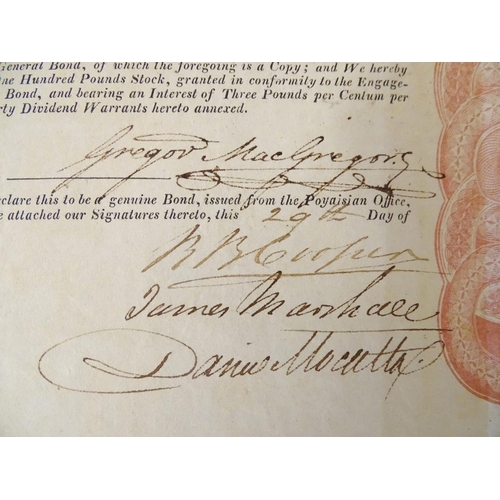 General Bond, of which the foregoing is a Copy; and We hereby
ne Hundred Pounds Stock, granted in conformity to the Engage-
Bond, and bearing an Interest of Three Pounds per Centum per
rty Dividend Warrants hereto annexed.
Gregor MacGregor
eclare this to be a genuine Bond, issued from the Poyaisian Office,
e attached our Signatures thereto, this 29th Day of
B B Cooper
James Marshall
Daniel Mocatta